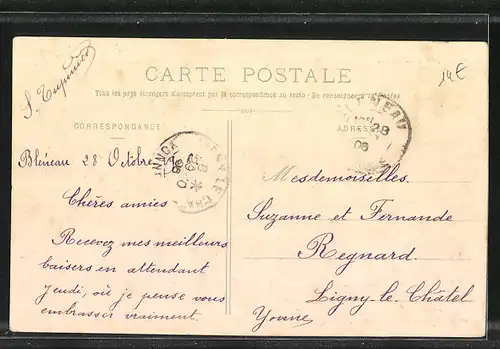 CARTE POSTALE
Tous les pays étrangers n'acceptent pas la correspondance au recto (Se renseigner à la Poste)
14€
CORRESPONDANCE
ADRESSE
Bléneau 28 Octobre
Chères amies
Recevez mes meilleurs
baisers en attendant
jeudi, où je pense vous
embrasser vraiment.
Mesdemoiselles
Suzanne et Fernande
Regnard
Ligny-le-Châtel
Yonne